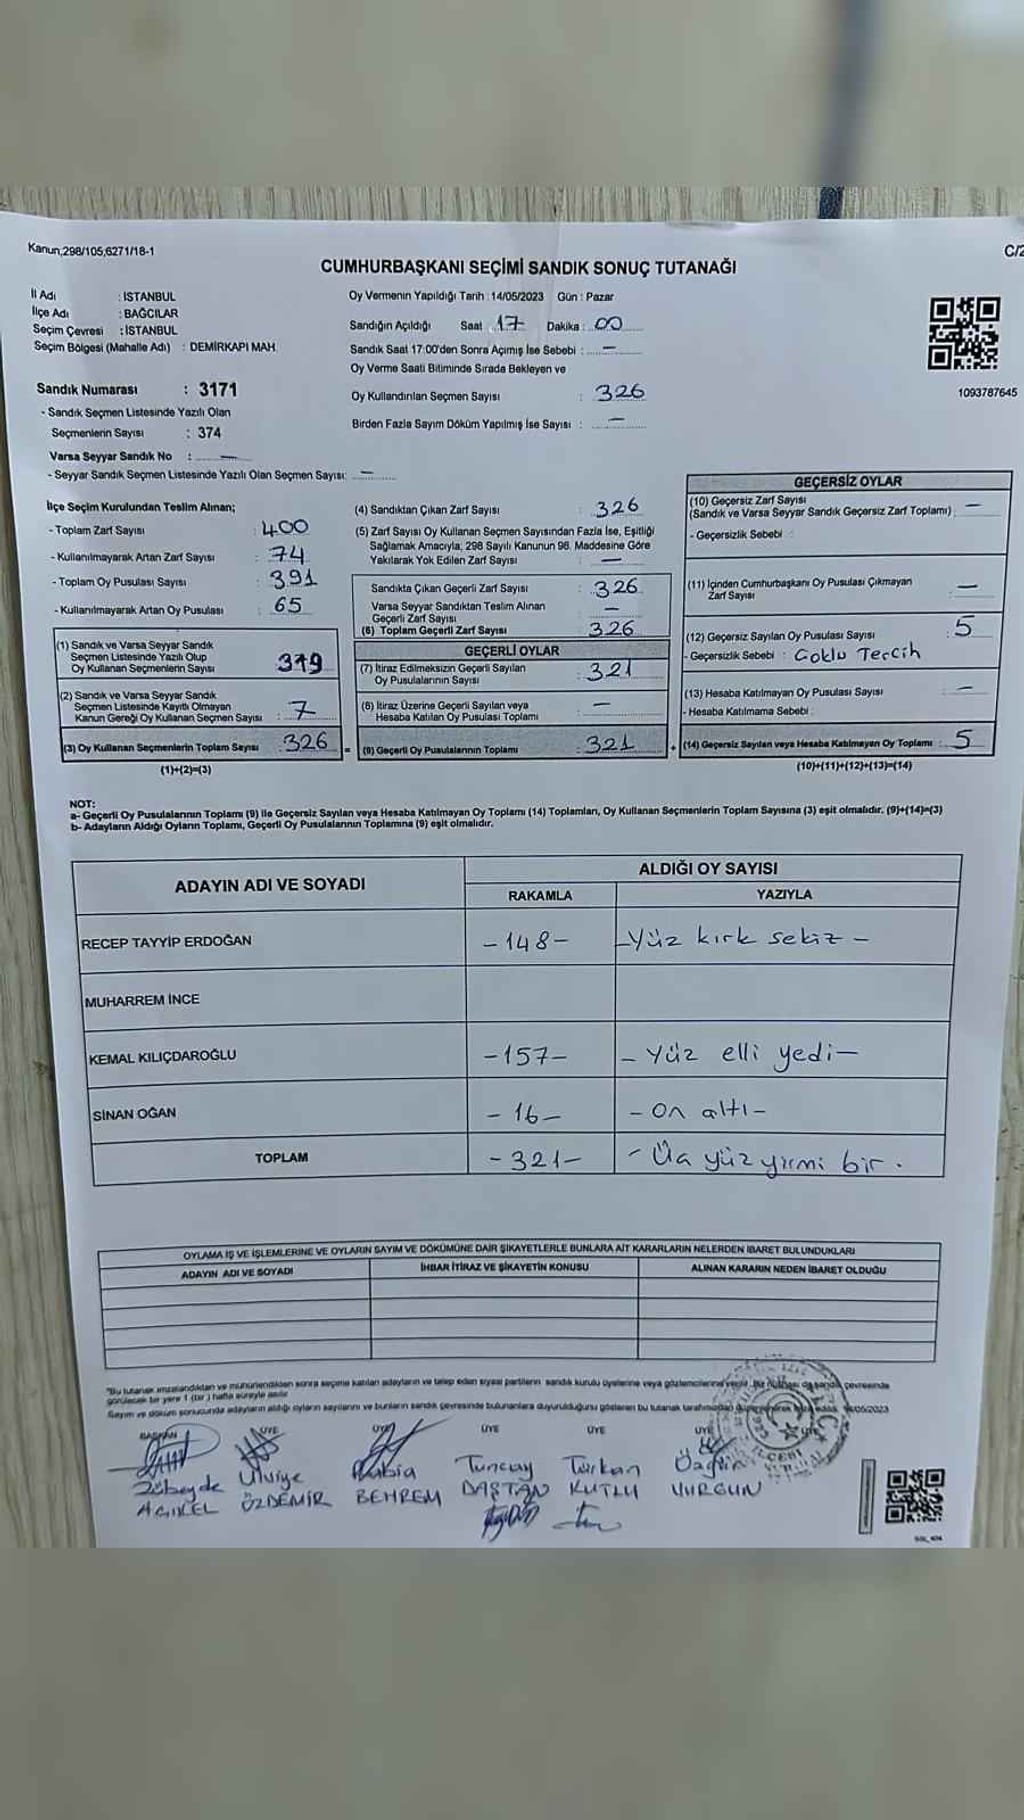 Kanun;298/105,6271/18-1
C/2
CUMHURBAŞKANI SEÇİMİ SANDIK SONUÇ TUTANAĞI
İl Adı : İSTANBUL
İlçe Adı : BAĞCILAR
Seçim Çevresi : İSTANBUL
Seçim Bölgesi (Mahalle Adı) : DEMİRKAPI MAH.
Oy Vermenin Yapıldığı Tarih : 14/05/2023 Gün : Pazar
Sandığın Açıldığı Saat 17 Dakika : 00
Sandık Saat 17:00'den Sonra Açımış İse Sebebi : —
Oy Verme Saati Bitiminde Sırada Bekleyen ve
Oy Kullandırılan Seçmen Sayısı : 326
Birden Fazla Sayım Döküm Yapılmış İse Sayısı : —
1093787645
Sandık Numarası : 3171
- Sandık Seçmen Listesinde Yazılı Olan
Seçmenlerin Sayısı : 374
Varsa Seyyar Sandık No : —
- Seyyar Sandık Seçmen Listesinde Yazılı Olan Seçmen Sayısı: —
İlçe Seçim Kurulundan Teslim Alınan;
- Toplam Zarf Sayısı : 400
- Kullanılmayarak Artan Zarf Sayısı : 74
- Toplam Oy Pusulası Sayısı : 391
- Kullanılmayarak Artan Oy Pusulası : 65
(1) Sandık ve Varsa Seyyar Sandık
Seçmen Listesinde Yazılı Olup
Oy Kullanan Seçmenlerin Sayısı : 319
(2) Sandık ve Varsa Seyyar Sandık
Seçmen Listesinde Kayıtlı Olmayan
Kanun Gereği Oy Kullanan Seçmen Sayısı : 7
(3) Oy Kullanan Seçmenlerin Toplam Sayısı : 326
(1)+(2)=(3)
(4) Sandıktan Çıkan Zarf Sayısı : 326
(5) Zarf Sayısı Oy Kullanan Seçmen Sayısından Fazla İse, Eşitliği
Sağlamak Amacıyla, 298 Sayılı Kanunun 98. Maddesine Göre
Yakılarak Yok Edilen Zarf Sayısı : —
Sandıkta Çıkan Geçerli Zarf Sayısı : 326
Varsa Seyyar Sandıktan Teslim Alınan
Geçerli Zarf Sayısı : —
(6) Toplam Geçerli Zarf Sayısı : 326
GEÇERLİ OYLAR
(7) İtiraz Edilmeksizin Geçerli Sayılan
Oy Pusulalarının Sayısı : 321
(8) İtiraz Üzerine Geçerli Sayılan veya
Hesaba Katılan Oy Pusulası Toplamı : —
= (9) Geçerli Oy Pusulalarının Toplamı : 321
GEÇERSİZ OYLAR
(10) Geçersiz Zarf Sayısı
(Sandık ve Varsa Seyyar Sandık Geçersiz Zarf Toplamı) : —
- Geçersizlik Sebebi :
(11) İçinden Cumhurbaşkanı Oy Pusulası Çıkmayan
Zarf Sayısı : —
(12) Geçersiz Sayılan Oy Pusulası Sayısı : 5
- Geçersizlik Sebebi : Çoklu Tercih
(13) Hesaba Katılmayan Oy Pusulası Sayısı : —
- Hesaba Katılmama Sebebi :
+ (14) Geçersiz Sayılan veya Hesaba Katılmayan Oy Toplamı : 5
(10)+(11)+(12)+(13)=(14)
NOT:
a- Geçerli Oy Pusulalarının Toplamı (9) ile Geçersiz Sayılan veya Hesaba Katılmayan Oy Toplamı (14) Toplamları, Oy Kullanan Seçmenlerin Toplam Sayısına (3) eşit olmalıdır. (9)+(14)=(3)
b- Adayların Aldığı Oyların Toplamı, Geçerli Oy Pusulalarının Toplamına (9) eşit olmalıdır.
ADAYIN ADI VE SOYADI
ALDIĞI OY SAYISI
RAKAMLA YAZIYLA
RECEP TAYYİP ERDOĞAN -148- -Yüz kırk sekiz -
MUHARREM İNCE
KEMAL KILIÇDAROĞLU -157- - Yüz elli yedi-
SİNAN OĞAN - 16- - On altı -
TOPLAM -321- - Üç yüz yirmi bir .
OYLAMA İŞ VE İŞLEMLERİNE VE OYLARIN SAYIM VE DÖKÜMÜNE DAİR ŞİKAYETLERLE BUNLARA AİT KARARLARIN NELERDEN İBARET BULUNDUKLARI
ADAYIN ADI VE SOYADI İHBAR İTİRAZ VE ŞİKAYETİN KONUSU ALINAN KARARIN NEDEN İBARET OLDUĞU
"Bu tutanak imzalandıktan ve mühürlendikten sonra seçime katılan adayların ve talep eden siyasi partilerin sandık kurulu üyelerine veya gözlemcilerine verilir. Bir nüshası da sandık çevresinde
görülecek bir yere 1 (bir) hafta süreyle asılır.
Sayım ve döküm sonucunda adayların aldığı oyların sayılarını ve bunların sandık çevresinde bulunanlara duyurulduğunu gösteren bu tutanak tarafımızdan
BAŞKAN ÜYE ÜYE ÜYE ÜYE ÜYE
Zübeyde Ulviye Rabia Tuncay Türkan Özgür
AÇIKEL ÖZDEMİR BEHREM DAŞTAN KUTLU VURGUN